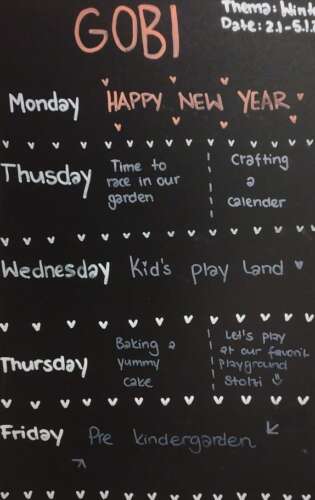 GOBI
Thema: Winte
Date: 2.1-5.1.2
Monday
HAPPY NEW YEAR
Thusday
Time to
race in our
garden
Crafting
a
calender
Wednesday
Kid's play Land
Thursday
Baking a
yummy
cake
Let's play
at our favorit
playground
Stolzi
Friday
Pre kindergarden